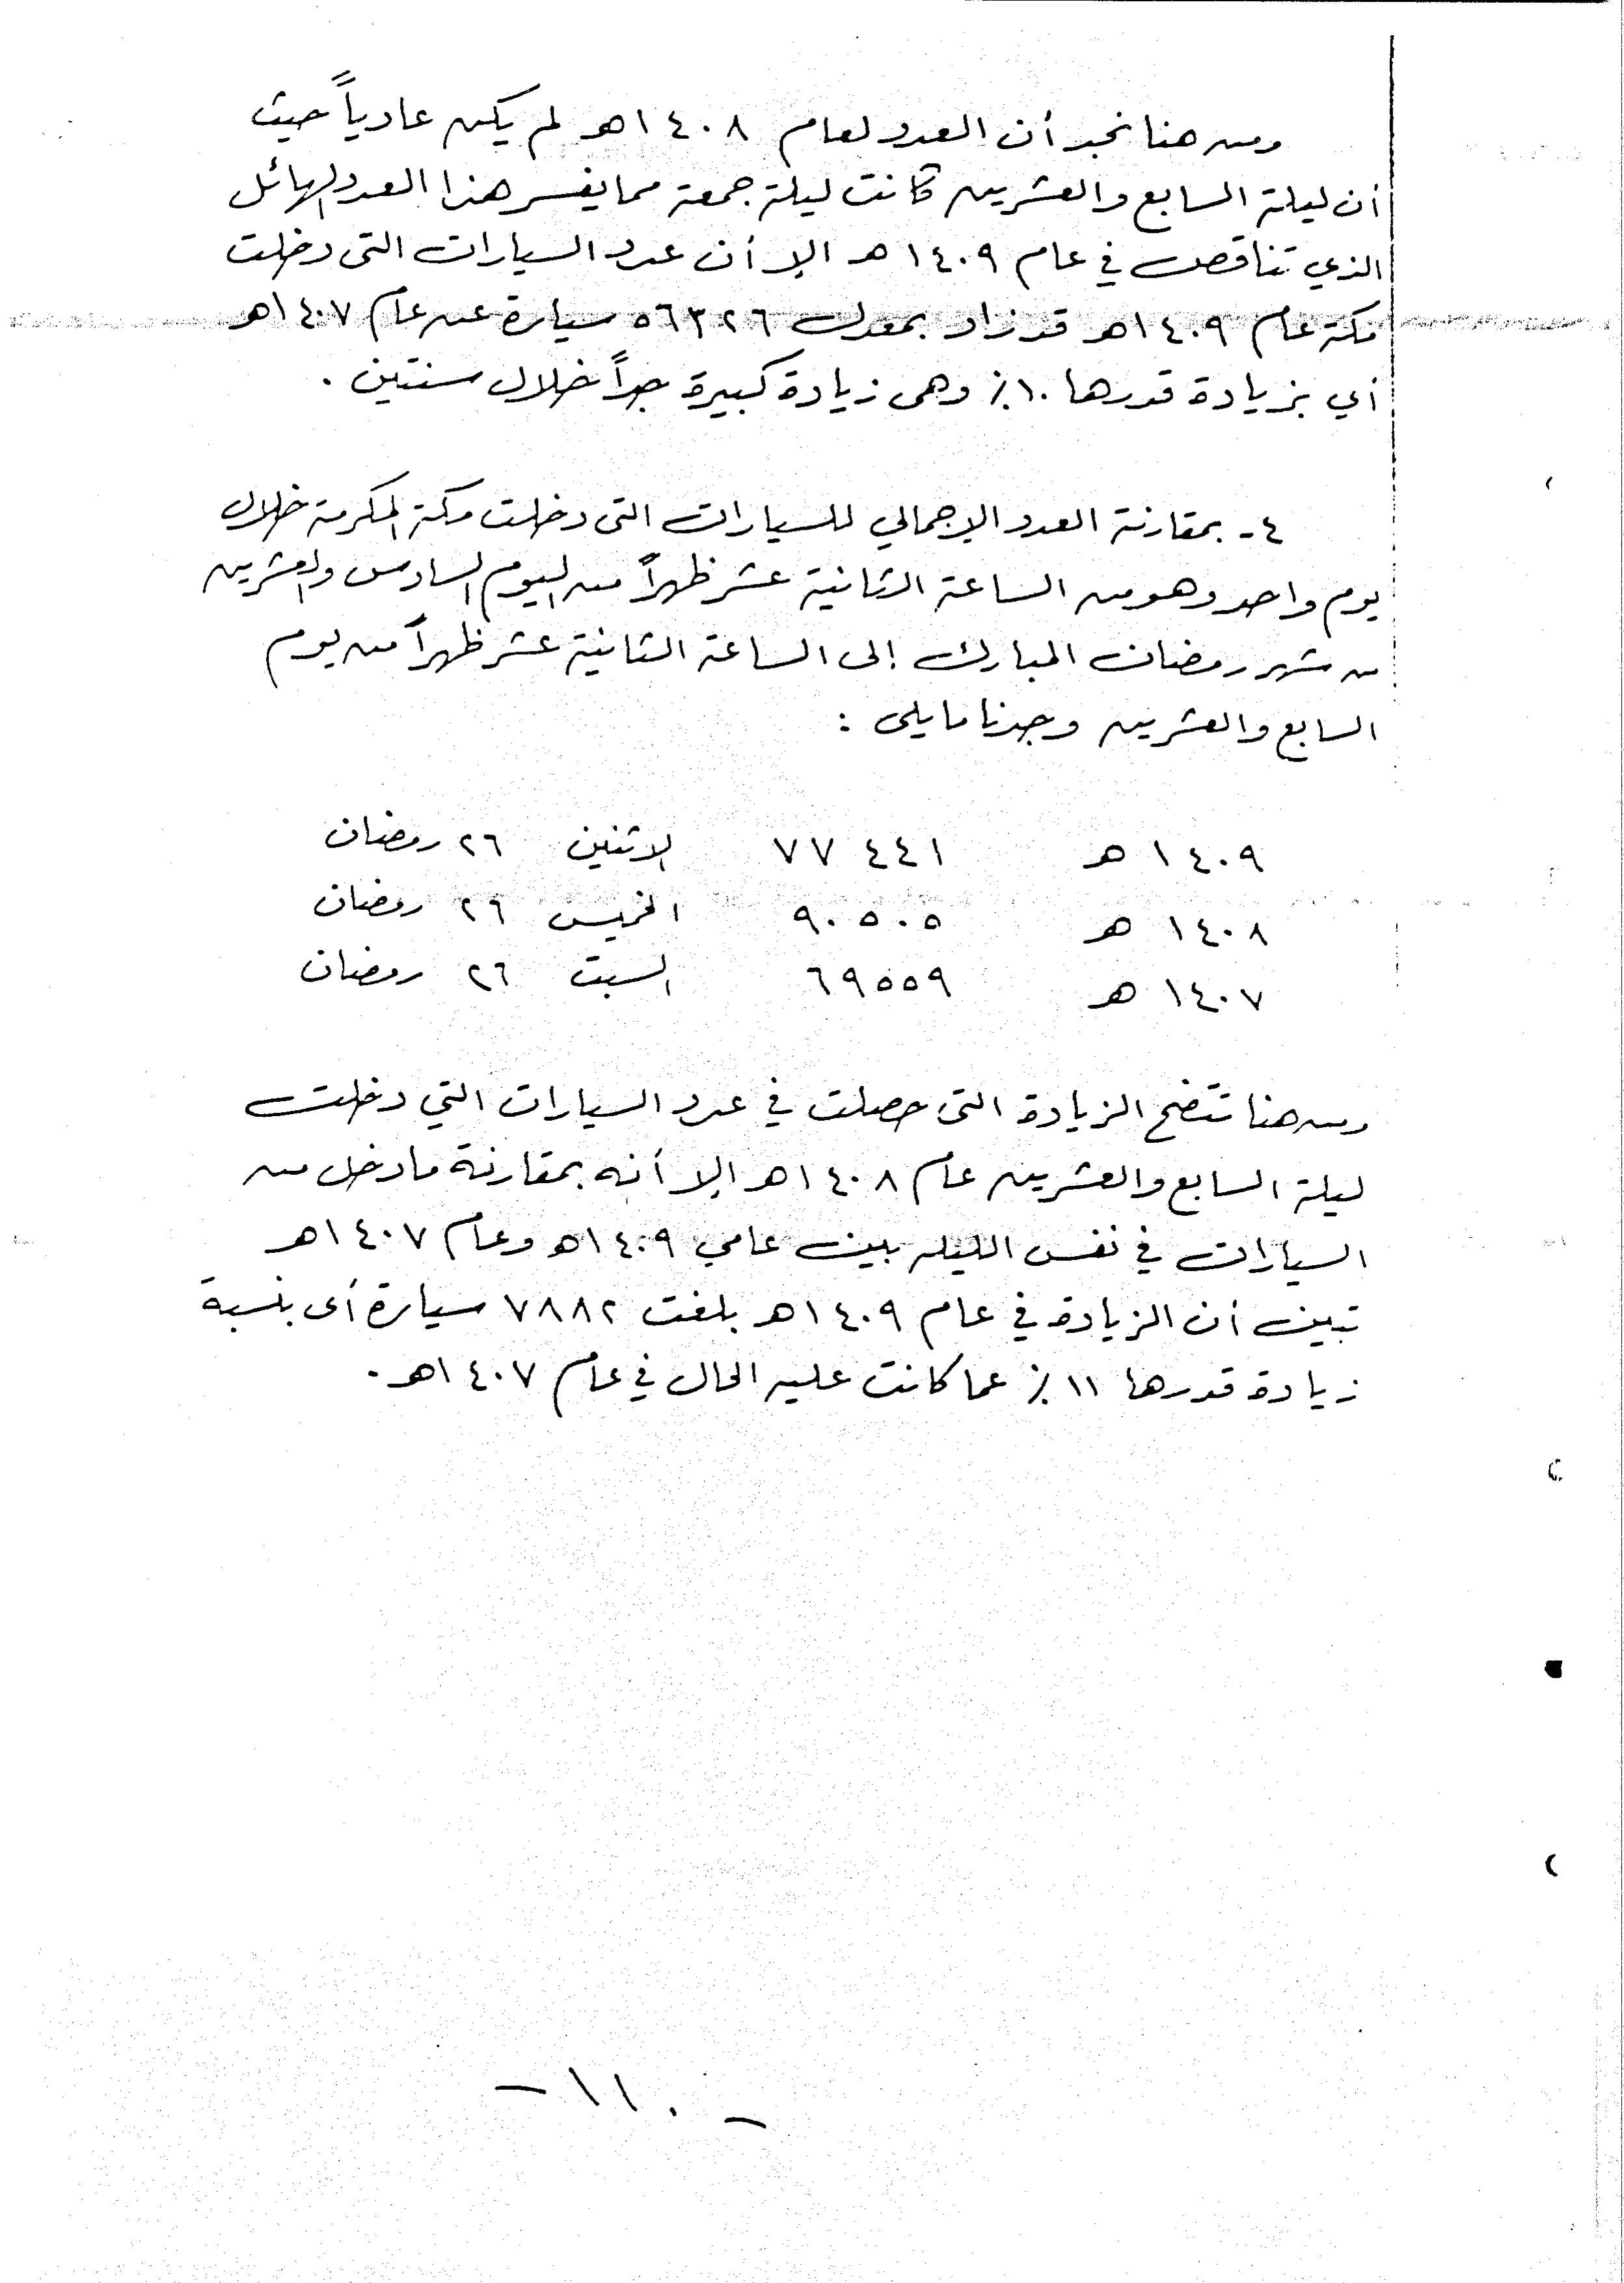 ومن هنا نجد أن العدد لعام ١٤٠٨هـ لم يكن عادياً حيث
أن ليلة السابع والعشرين كانت ليلة جمعة مما يفسر هذا العدد الهائل
الذي تناقص في عام ١٤٠٩هـ الا أن عدد السيارات التى دخلت
مكة عام ١٤٠٩هـ قد زاد بمعدل ٥٦٣٢٦ سيارة عن عام ١٤٠٧هـ
أي بزيادة قدرها ١٠٪ وهى زيادة كبيرة جداً خلال سنتين .
٤- بمقارنة العدد الإجمالي للسيارات التى دخلت مكة المكرمة خلال
يوم واحد وهو من الساعة الثانية عشر ظهراً من اليوم السادس والعشرين
من شهر رمضان المبارك إلى الساعة الثانية عشر ظهراً من يوم
السابع والعشرين وجدنا مايلى :
١٤٠٩ هـ ٧٧٤٤١ الاثنين ٢٦ رمضان
١٤٠٨ هـ ٩٠٥٠٥ الخميس ٢٦ رمضان
١٤٠٧ هـ ٦٩٥٥٩ السبت ٢٦ رمضان
ومن هنا تتضح الزيادة التى حصلت في عدد السيارات التي دخلت
ليلة السابع والعشرين عام ١٤٠٨هـ إلا أنه بمقارنة مادخل من
السيارات في نفس الليله بين عامي ١٤٠٩هـ وعام ١٤٠٧هـ
تبين أن الزيادة في عام ١٤٠٩هـ بلغت ٧٨٨٢ سيارة أى بنسبة
زيادة قدرها ١١٪ عما كانت عليه الحال في عام ١٤٠٧هـ .
- ١١٠ -